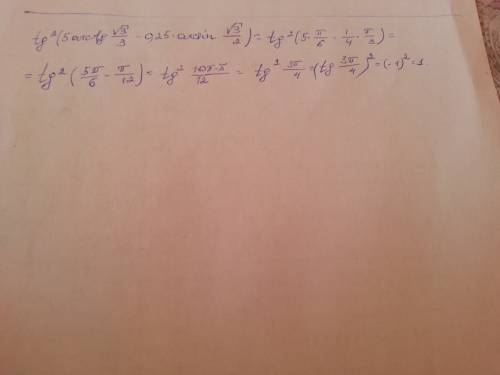 tg²(5 arctg √3/3 - 0,25 · arcsin √3/2) = tg²(5 · π/6 - 1/4 · π/3) =
= tg²(5π/6 - π/12) = tg² (10π-π)/12 = tg² 3π/4 = (tg 3π/4)² = (-1)² = 1